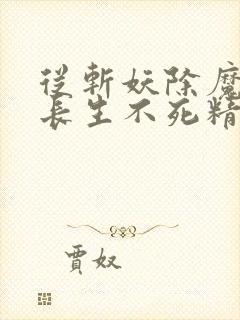 從斬妖除魔
長生不死精
賈奴